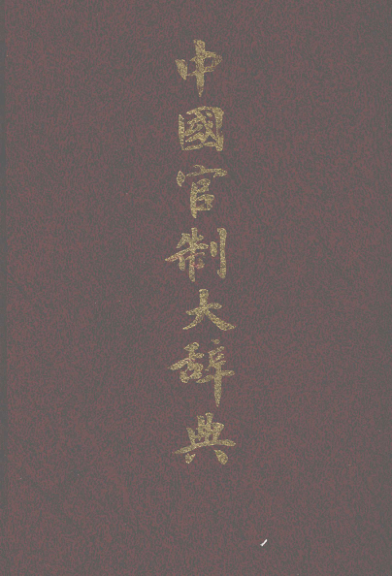 中國官制大辞典